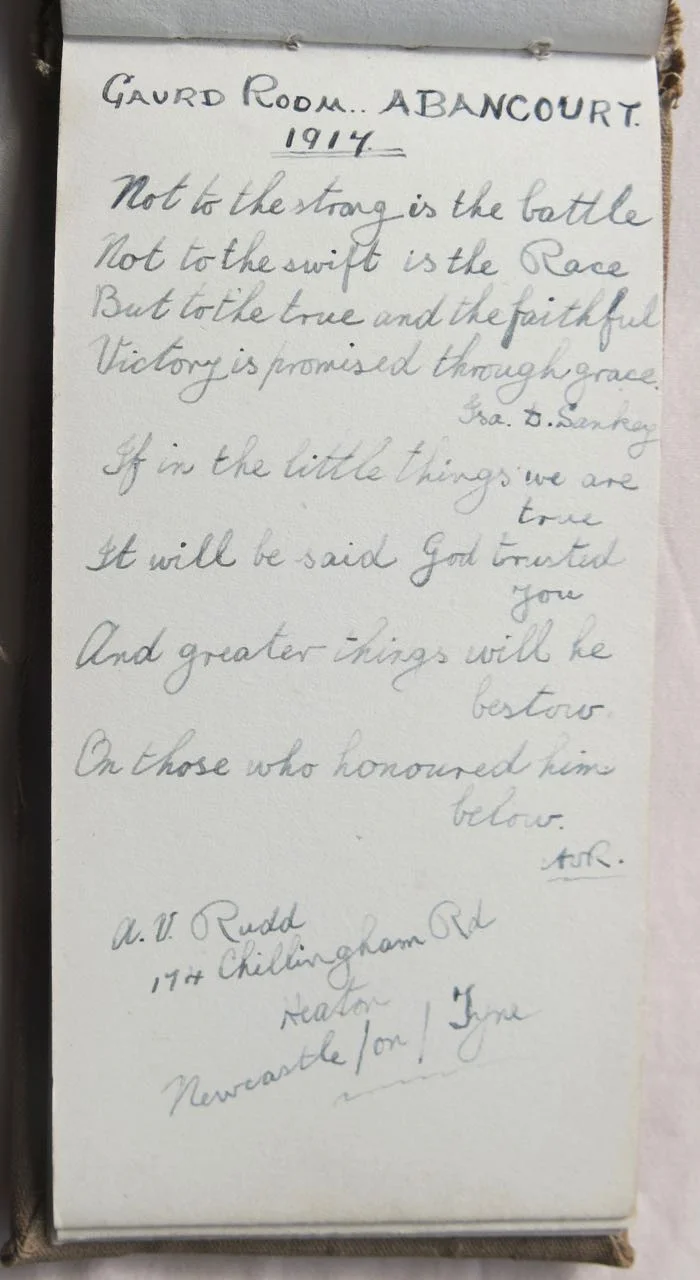 GAURD ROOM.. ABANCOURT.
1917.
Not to the strong is the battle
Not to the swift is the Race
But to the true and the faithful
Victory is promised through grace.
Isa. D. Sankey
If in the little things we are
true
It will be said God trusted
you
And greater things will he
bestow.
On those who honoured him
below.
AVR.
A. V. Rudd
174 Chillingham Rd
Heaton
Newcastle/on/Tyne